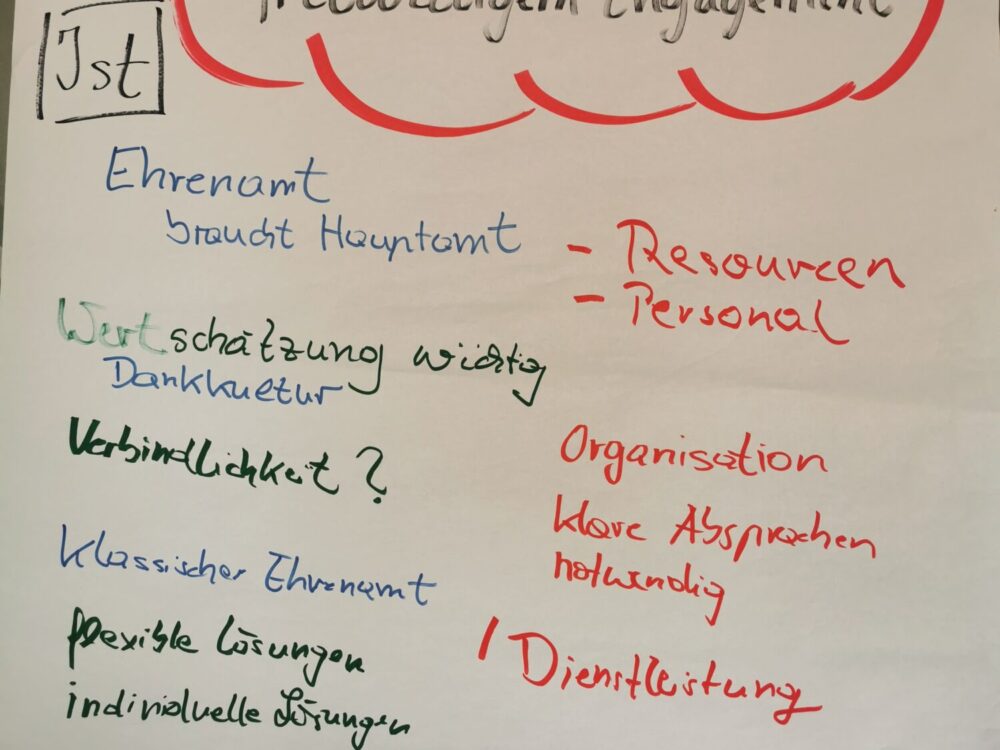 freiwilligem Engagement
Ist
Ehrenamt
braucht Hauptamt
- Resourcen
- Personal
Wertschätzung wichtig
Dankkultur
Verbindlichkeit ?
Organisation
klare Absprachen
notwendig
Klassischer Ehrenamt
flexible Lösungen
individuelle Lösungen
/ Dienstleistung